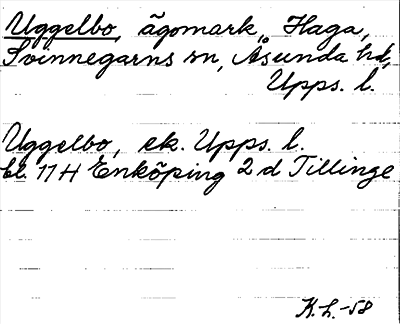 Uggelbo, ägomark, Haga,
Svinnegarns sn, Åsunda hd,
Upps. l.
Uggelbo, ek. Upps. l.
bl. 11 H Enköping 2 d Tillinge
K.L. -58